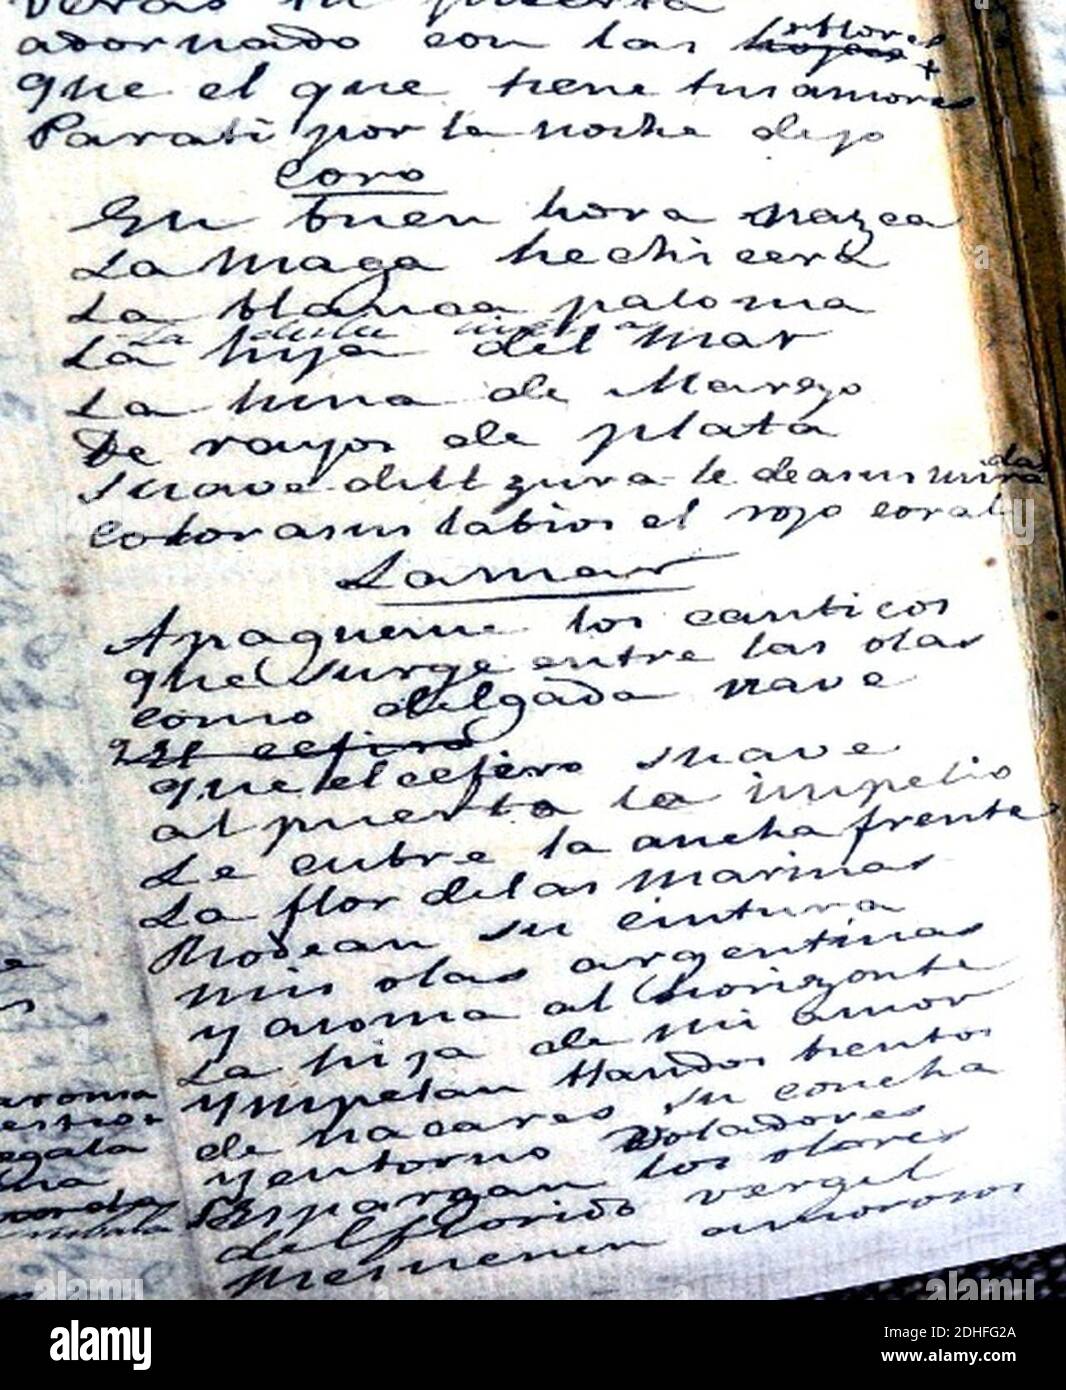 veras tu puerta
adornado con las flores
hojas +
que el que tiene tus amores
Parati por la noche dejo
Coro
En buen hora nazca
La Maga hechicera
La blanca paloma
La
La hija del mar
La luna de Marzo
De rayos de plata
suave dulzura le de a sus miradas
color a sus labios el rojo coral
La mar
Apaguenme los canticos
que surge entre las olas
como delgada nave
El cefiro
que el cefiro suave
al puerto la impelio
Le cubre la ancha frente
La flor de las marinas
Rodean su cintura
mis olas argentinas
y asoma al horizonte
La hija de mi amor
Ympelan blandos vientos
de nacares su concha
y entorno voladores
Esparzan los olores
del florido vergel
Resuenen amorosos
aroma
egala
alamy
Image ID: 2DHFG2A
www.alamy.com